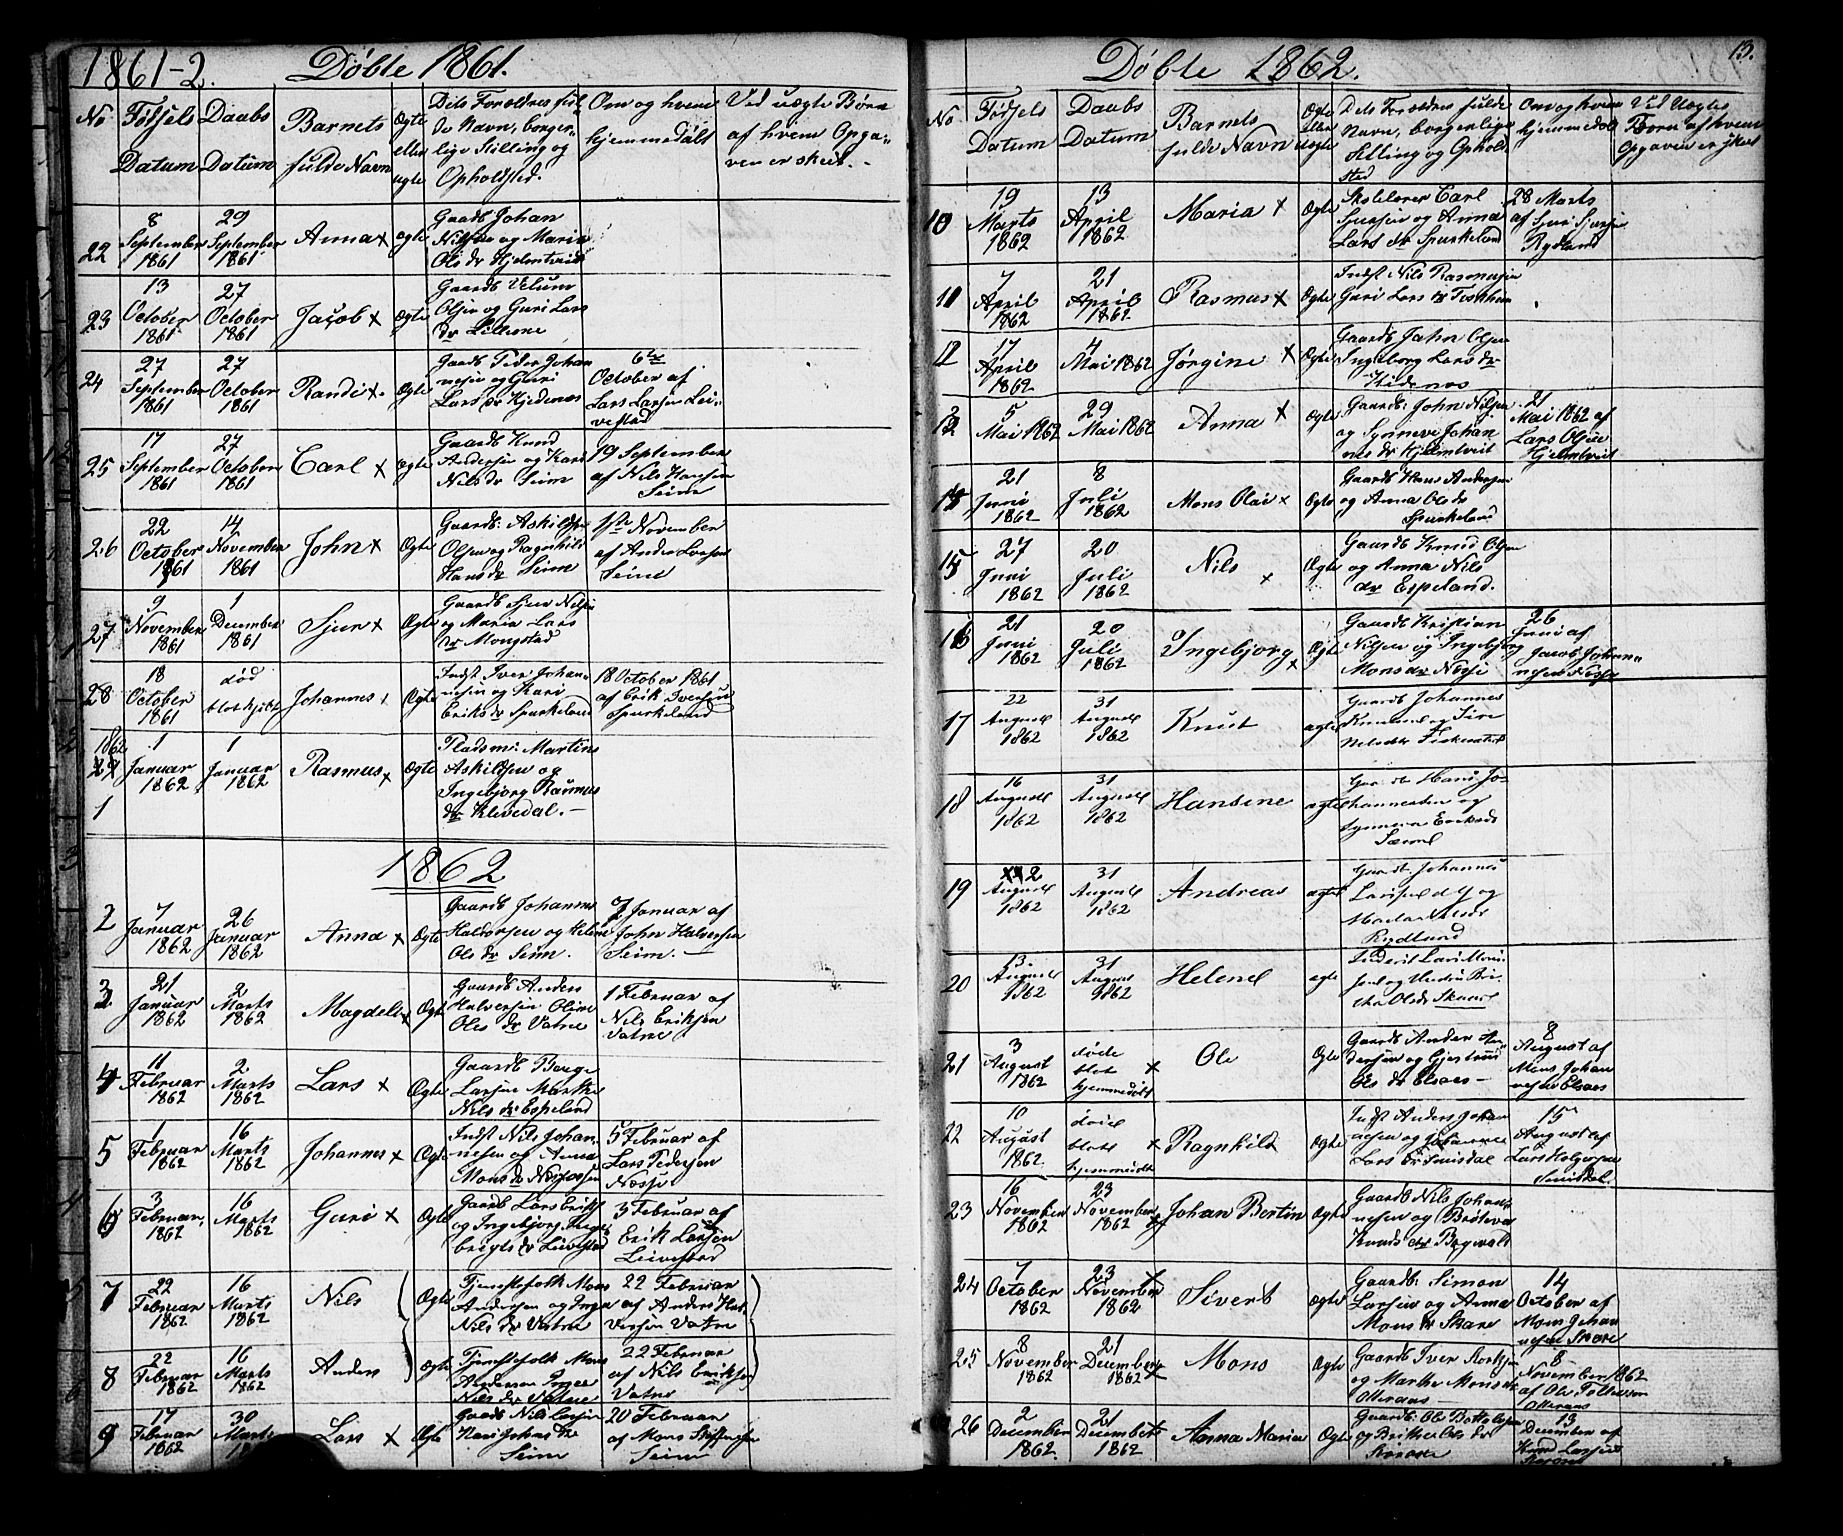 1861-2. Døbte 1861.
No Fødsels Datum Daabs Datum Barnets fulde Navn Ægte eller uægte Dets Forældres fulde Navn, borgerlige Stilling og Opholdsted. Om og hvem hjemmedøbt Ved uægte Børn af hvem Opgaven er skeet.
22 8 September 1861 29 September 1861 Anna x Ægte Gaardb Johan Nilsen og Maria Ols dr Hjelmtveit
23 13 October 1861 27 October 1861 Jacob x Ægte Gaardb Olsen og Guri Lars dr
24 27 September 1861 27 October 1861 Randi x Ægte Gaardb Peder Johannesen og Guri Lars dr Hjedenæs 6te October af Lars Larsen Leivestad
25 17 September 1861 27 October 1861 Carl x Ægte Gaardb Knud Andersen og Kari Nils dr Seim 19 September af Nils Hansen Seim
26 22 October 1861 14 November 1861 John x Ægte Gaardb: Askild Olsen og Ragnhild Hans dr Seim 1ste November af Anders Larsen Seim
27 9 November 1861 1 December 1861 Sjur x Ægte Gaardb Sjur Nilsen og Maria Lars dr Mongstad
28 18 October 1861 død Johannes Ægte Indst Iver Johannesen og Kari Eriks dr Spurkeland 18 October 1861 af Erik Iversen Spurkeland
1862 1 1 Januar 1862 1 Januar 1862 Rasmus x Ægte Pladsm: Martin Askildsen og Ingebjorg Rasmus dr Klevedal. -
1862
2 7 Januar 1862 26 Januar 1862 Anna x Ægte Gaardb Johannes Halvorsen og Helene Ols dr Seim. 7 Januar af John Halversen Seim. -
3 21 Januar 1862 2 Marts 1862 Magdeli x Ægte Gaardb Anders Halversen Oline Ols dr Vatne 1 Februar af Nils Eriksen Vatne
4 11 Februar 1862 2 Marts 1862 Lars x Ægte Gaardb Børge Larsen Marthe Nils dr Espeland
5 1 Februar 1862 16 Marts 1862 Johannes x Ægte Indst Nils Johannesen og Anna Mons dr 5 Februar af Lars Pedersen Næsse
6 3 Februar 1862 16 Marts 1862 Guri x Ægte Gaardb Lars og Ingebjorg dr Leivestad 3 Februar af Erik Larsen Leivestad
7 22 Februar 1862 16 Marts 1862 Nils Ægte Tjenstefolk Mons Andersen og Inga Nils dr Vatne 22 Februar af Anders Halversen Vatne
8 22 Februar 1862 16 Marts 1862 Anders Ægte Tjenstefolk Mons Andersen Inger Nils dr Vatne 22 Februar af Nils Eriksen Vatne
9 17 Februar 1862 30 Marts Lars x Ægte Gaardb Nils Larsen Kari Johns dr Seim 20 Februar af Mons Steffensen Seim
Døbte 1862. 13.
No Fødsels Datum Daabs Datum Barnets fulde Navn Ægte eller uægte Dets Forældres fulde Navn, borgerlige Stilling og Opholdsted Om og hvem hjemmedøbt Ved Uægte Børn af hvem Opgaven er skeet
10 19 Marts 1862 13 April 1862 Maria x Ægte Skolelærer Carl Sjursen og Anna Lars dr Spurkeland 28 Marts af Sjur Sjursen Rydland
11 7 April 1862 21 April 1862 Rasmus x Ægte Indst Nils Rasmusen Guri Lars dr
12 17 April 1862 4 Mai 1862 Jørgine x Ægte Gaardb John Olsen Ingeborg Lars dr
13 5 Mai 1862 29 Mai 1862 Anna x Ægte Gaardb: John Nilsen og Synneve Johannes dr Hjelmtveit 21 Mai 1862 af Lars Olsen Hjelmtveit
14 21 Juni 1862 8 Juli 1862 Mons Olai x Ægte Gaardb Hans Andersen og Anna Ols dr Spurkeland
15 27 Juni 1862 20 Juli 1862 Nils x Ægte Gaardb Knud Olsen og Anna Nils dr Espeland.
16 21 Juni 1862 20 Juli 1862 Ingebjorg x Ægte Gaardb Kristian Nilsen og Ingebjorg Mons dr Næsse 26 Juni af Jacob Johannesen
17 22 August 1862 31 August 1862 Knut ægte Gaardb Johannes og Siri Nilsdtr
18 16 August 1862 31 August 1862 Hansine ægte Gaardb Hans Johannesen og Synneva
19 2 August 1862 31 August 1862 Andreas ægte Gaardb Johannes og Marta Rydland
20 13 August 1862 31 August 1862 Helene ægte Olsdr Skaar
21 3 August 1862 døde blot hjemmedøbt x Ole Ægte Gaardb Anders Andersen og Gjertrud Ols dr Elsaas - 8 August af Mons Johannesen Elsaas
22 10 August 1862 død blot hjemmedøbt x Ragnhild Ægte Indst Anders Johannesen og Johanne Lars dr 15 August af Lars Holgersen
23 16 November 1862 23 November 1862 x Johan Bertin Ægte Gaardb Nils Johannesen og Brøteva Knuds dtr
24 7 October 1862 23 November 1862 x Sivert Ægte Gaardb: Simon Larsen og Anna Mons dr Skare 14 October af Mons Johannesen Skare
25 8 November 1862 21 December 1862 x Mons Ægte Gaardb Iver og Marthe Mons dr 8 November 1862 af Ole
26 2 December 1862 21 December 1862 Anna Maria Ægte Gaardb: Ole og Brithe Ols dr 13 December af Knud Larsen